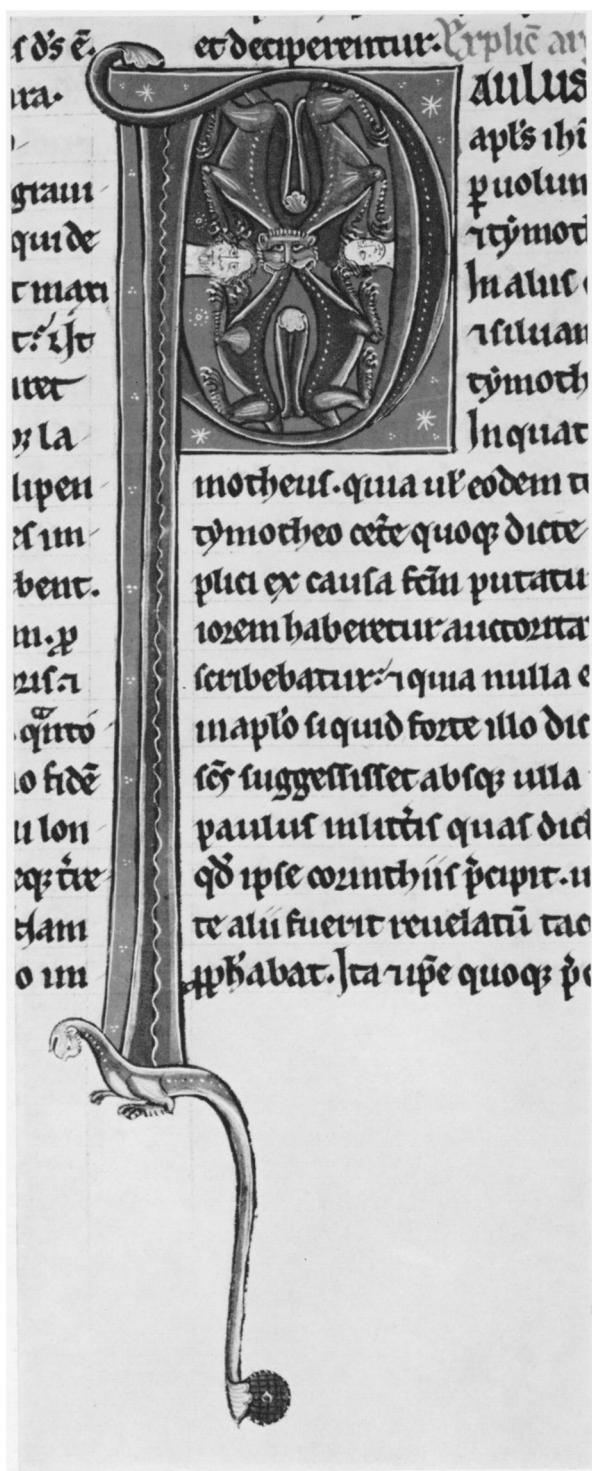 s d̄s ē.
ra.
graui
qui de
t mari
uret
or la
lipen
es im
bent.
in. ꝓ
oris. ⁊
qͣnto
o fidē
u lon
eqꝫ
clam
o im
et deciperentur. Explic̄
AULUS
apl̄s ihū
ꝑ uolun
⁊ tymoth
In aliis
⁊ siluan
tymoth
In quat
motheus. quia ul̄ eodem te
tymotheo cet̄e quoqꝫ dicte
plici ex causa fc̄m putatu
iorem haberetur auctorita
scribebatur: ⁊ quia nulla e
in aplo si quid forte illo dic
sc̄s suggessisset absqꝫ ulla
paulus in litt̄is quas dict
qd̄ ipse corinthiis p̄cipit. u
te alii fuerit reuelatū tac
ꝓph̄abat. Ita ⁊ ip̄e quoqꝫ p̄